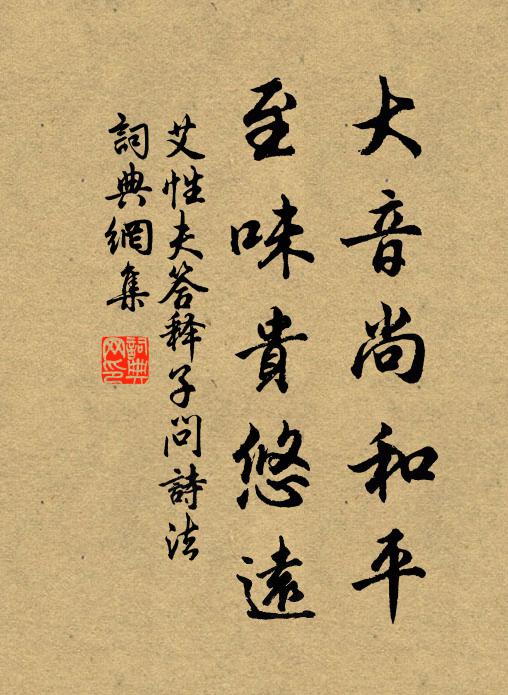 大音尚和平
至味貴悠遠
艾性夫答释子問詩法
詞典網集
詞典网印